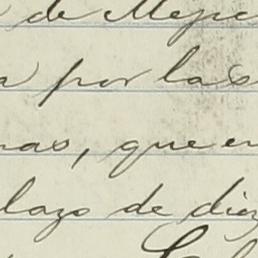 de Meje
a por las
nas, que en
lazo de diez